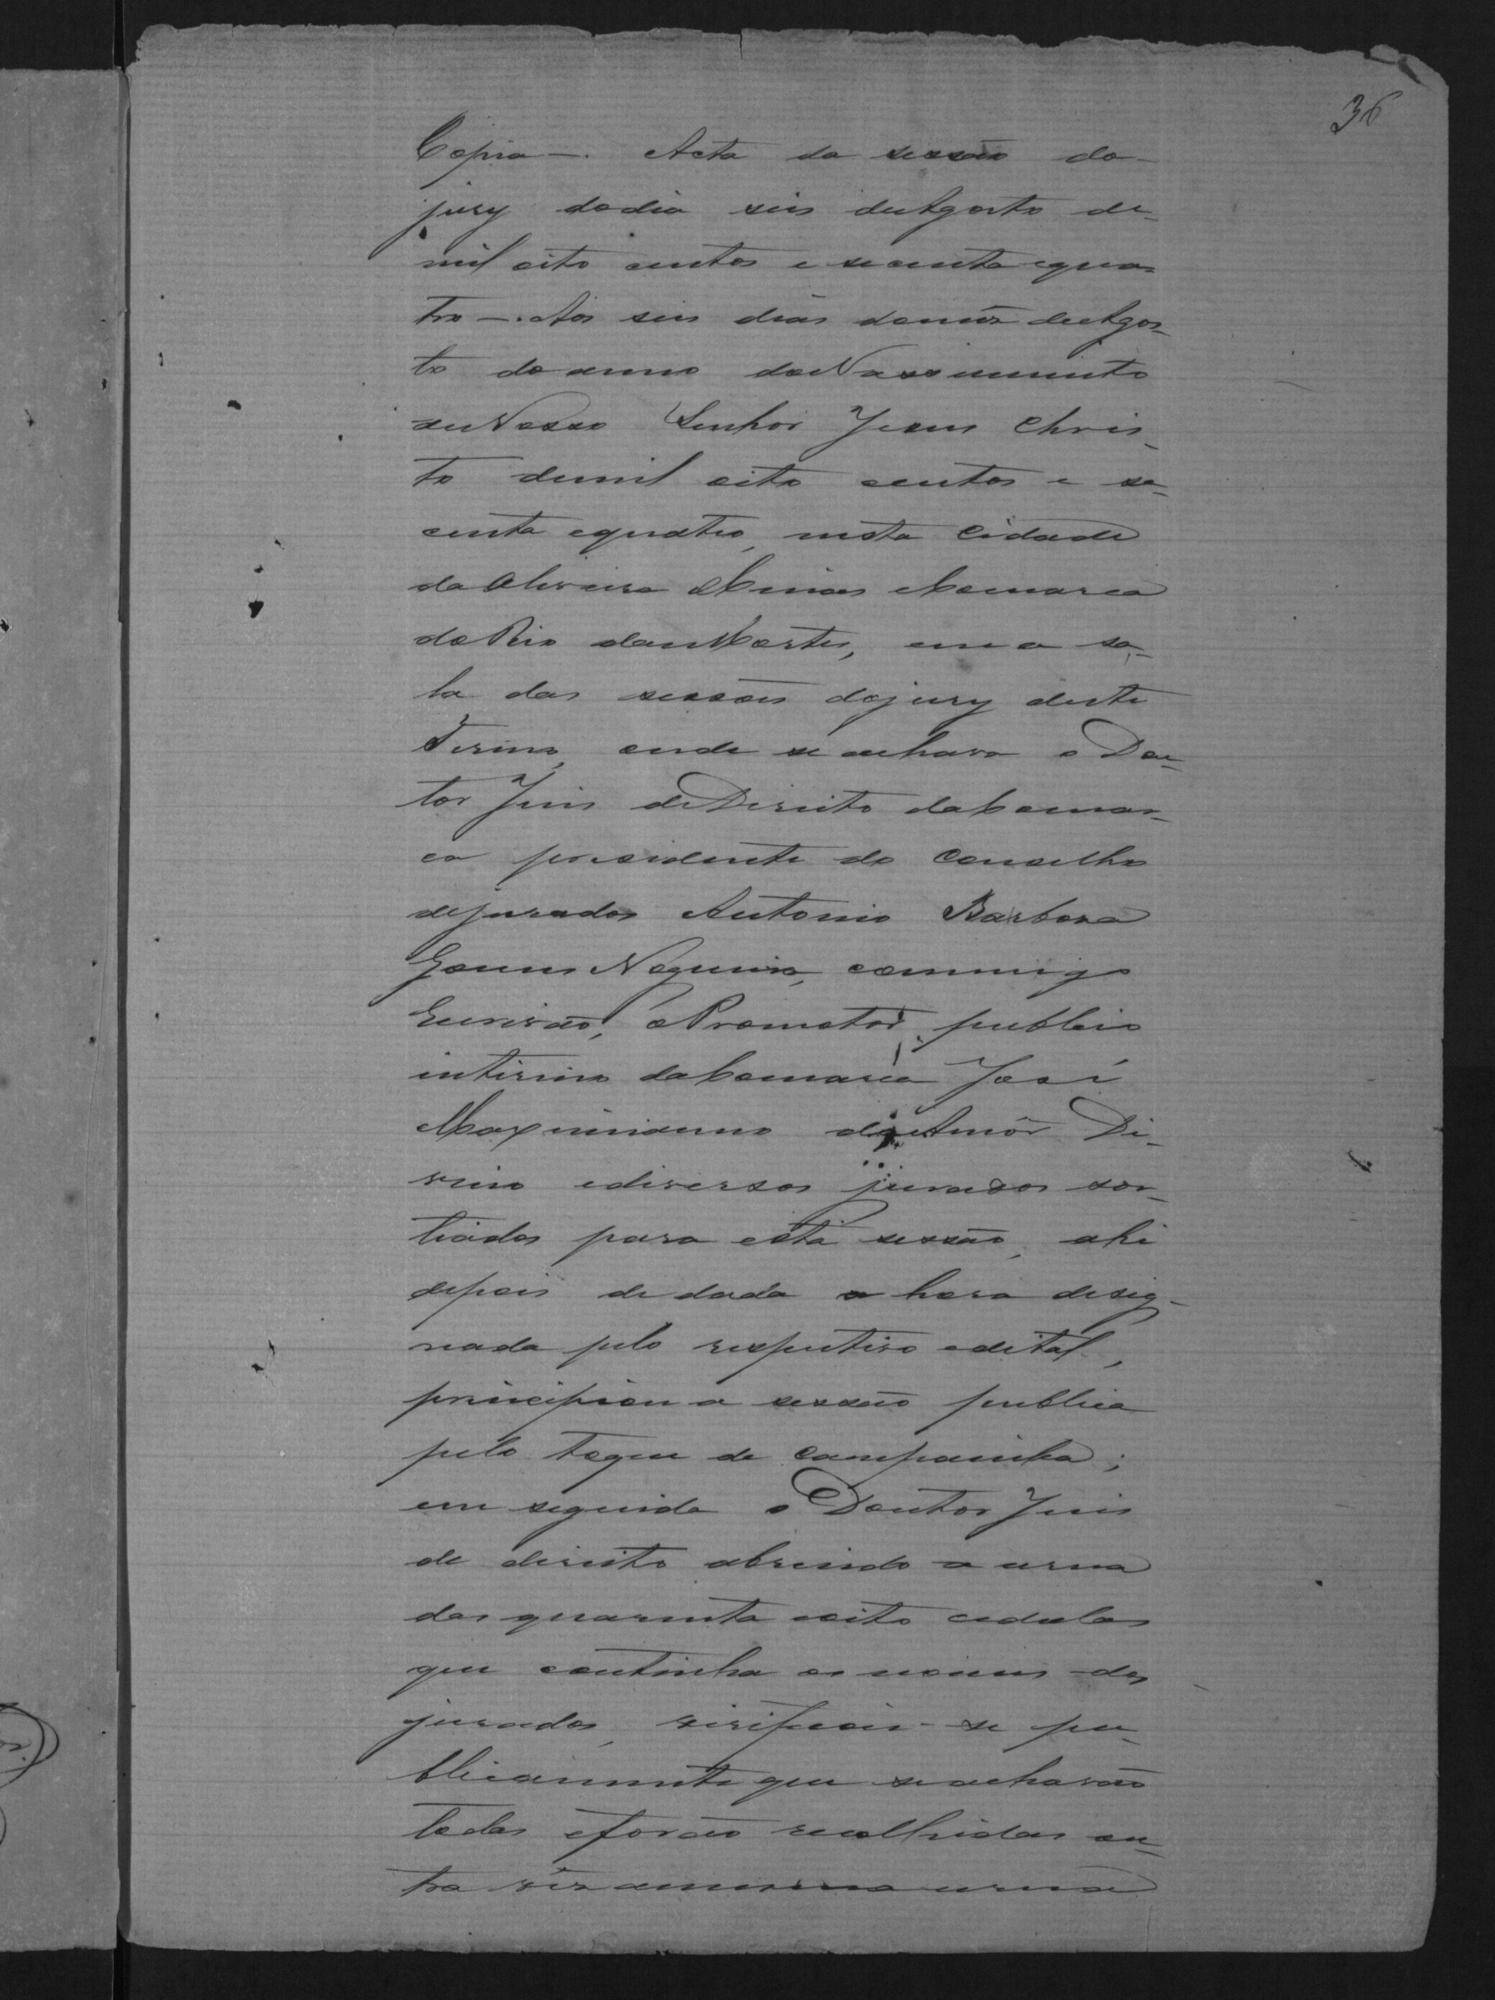 36
Copia —. Acta da sessão do
jury do dia seis de Agosto de
mil oito centos e secenta e qua-
tro —. Aos seis dias do mês de Agos-
to do anno do Nascimento
de Nosso Senhor Jesus Chris-
to de mil oito centos e se-
centa e quatro, nesta Cidade
da Oliveira Minas Comarca
do Rio das Mortes, em a sa-
la das sessões do jury deste
Termo, onde se achava o Dou-
tor Juis de Direito da Comar-
ca presidente do Conselho
de jurados Antonio Barbosa
Gomes Nogueira, commigo
Escrivão, o Promotor publico
interino da Comarca José
Maximianno do Amôr Di-
vino e diversos jurados sor-
tiados para esta sessão, ahi
depois de dada a hora desig-
nada pelo respectivo edital,
principiou a sessão publica
pelo toque de campainha;
em seguida o Doutor Juis
de direito abrindo a urna
das quarenta e oito cedulas
que continha os nomes dos
jurados, verificou-se pu-
blicamente que se achavão
todas e forão recolhidas ou-
tra vêz a mesma urna